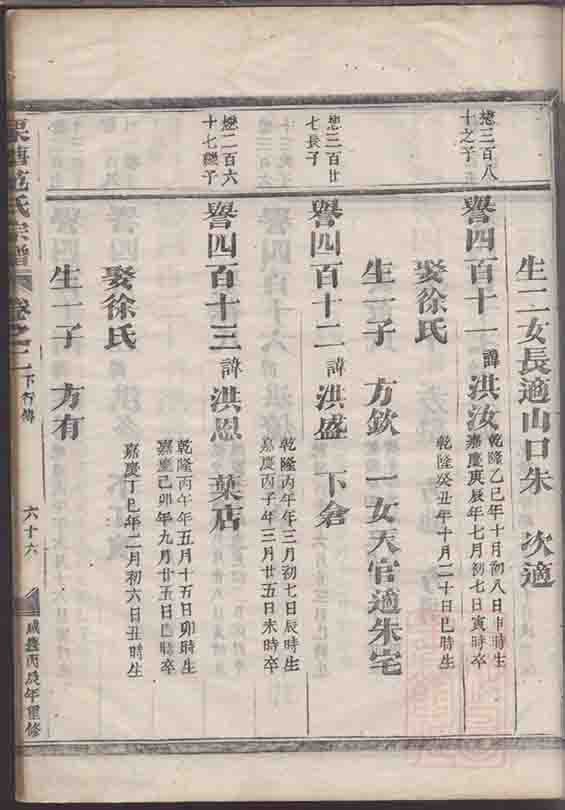 生二女長適山口朱 次適
懋三百八
十之子
譽四百十一 諱洪汝
乾隆乙巳年十月初八日申時生
嘉慶庚辰年七月初七日寅時卒
娶徐氏
乾隆癸丑年十月二十日巳時生
生一子 方欽 一女天官適朱宅
懋三百廿
七長子
譽四百十二 諱洪盛 下倉
乾隆丙午年三月初七日辰時生
嘉慶丙子年三月廿五日未時卒
懋二百六
十七繼子
譽四百十三 諱洪恩 葉店
乾隆丙午年五月十五日卯時生
嘉慶己卯年九月廿五日巳時卒
娶徐氏
嘉慶丁巳年二月初六日丑時生
生一子 方有
氏宗譜 卷之二 下行傳 六十六 咸豐丙辰年重修